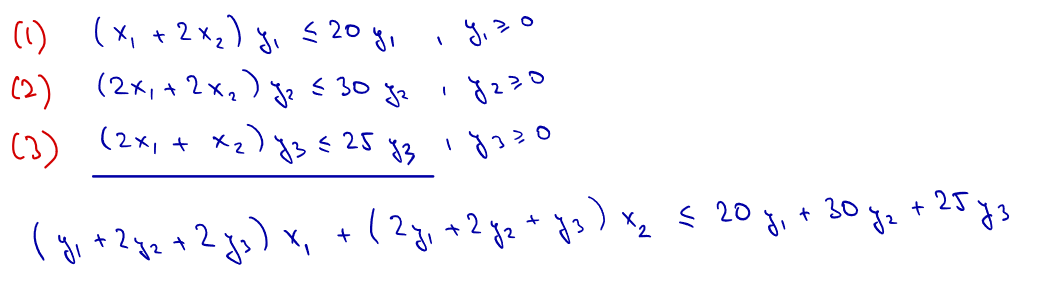 (1) (x₁ + 2x₂) y₁ ≤ 20 y₁ , y₁ ≥ 0
(2) (2x₁ + 2x₂) y₂ ≤ 30 y₂ , y₂ ≥ 0
(3) (2x₁ + x₂) y₃ ≤ 25 y₃ , y₃ ≥ 0
(y₁ + 2y₂ + 2y₃) x₁ + (2y₁ + 2y₂ + y₃) x₂ ≤ 20 y₁ + 30 y₂ + 25 y₃